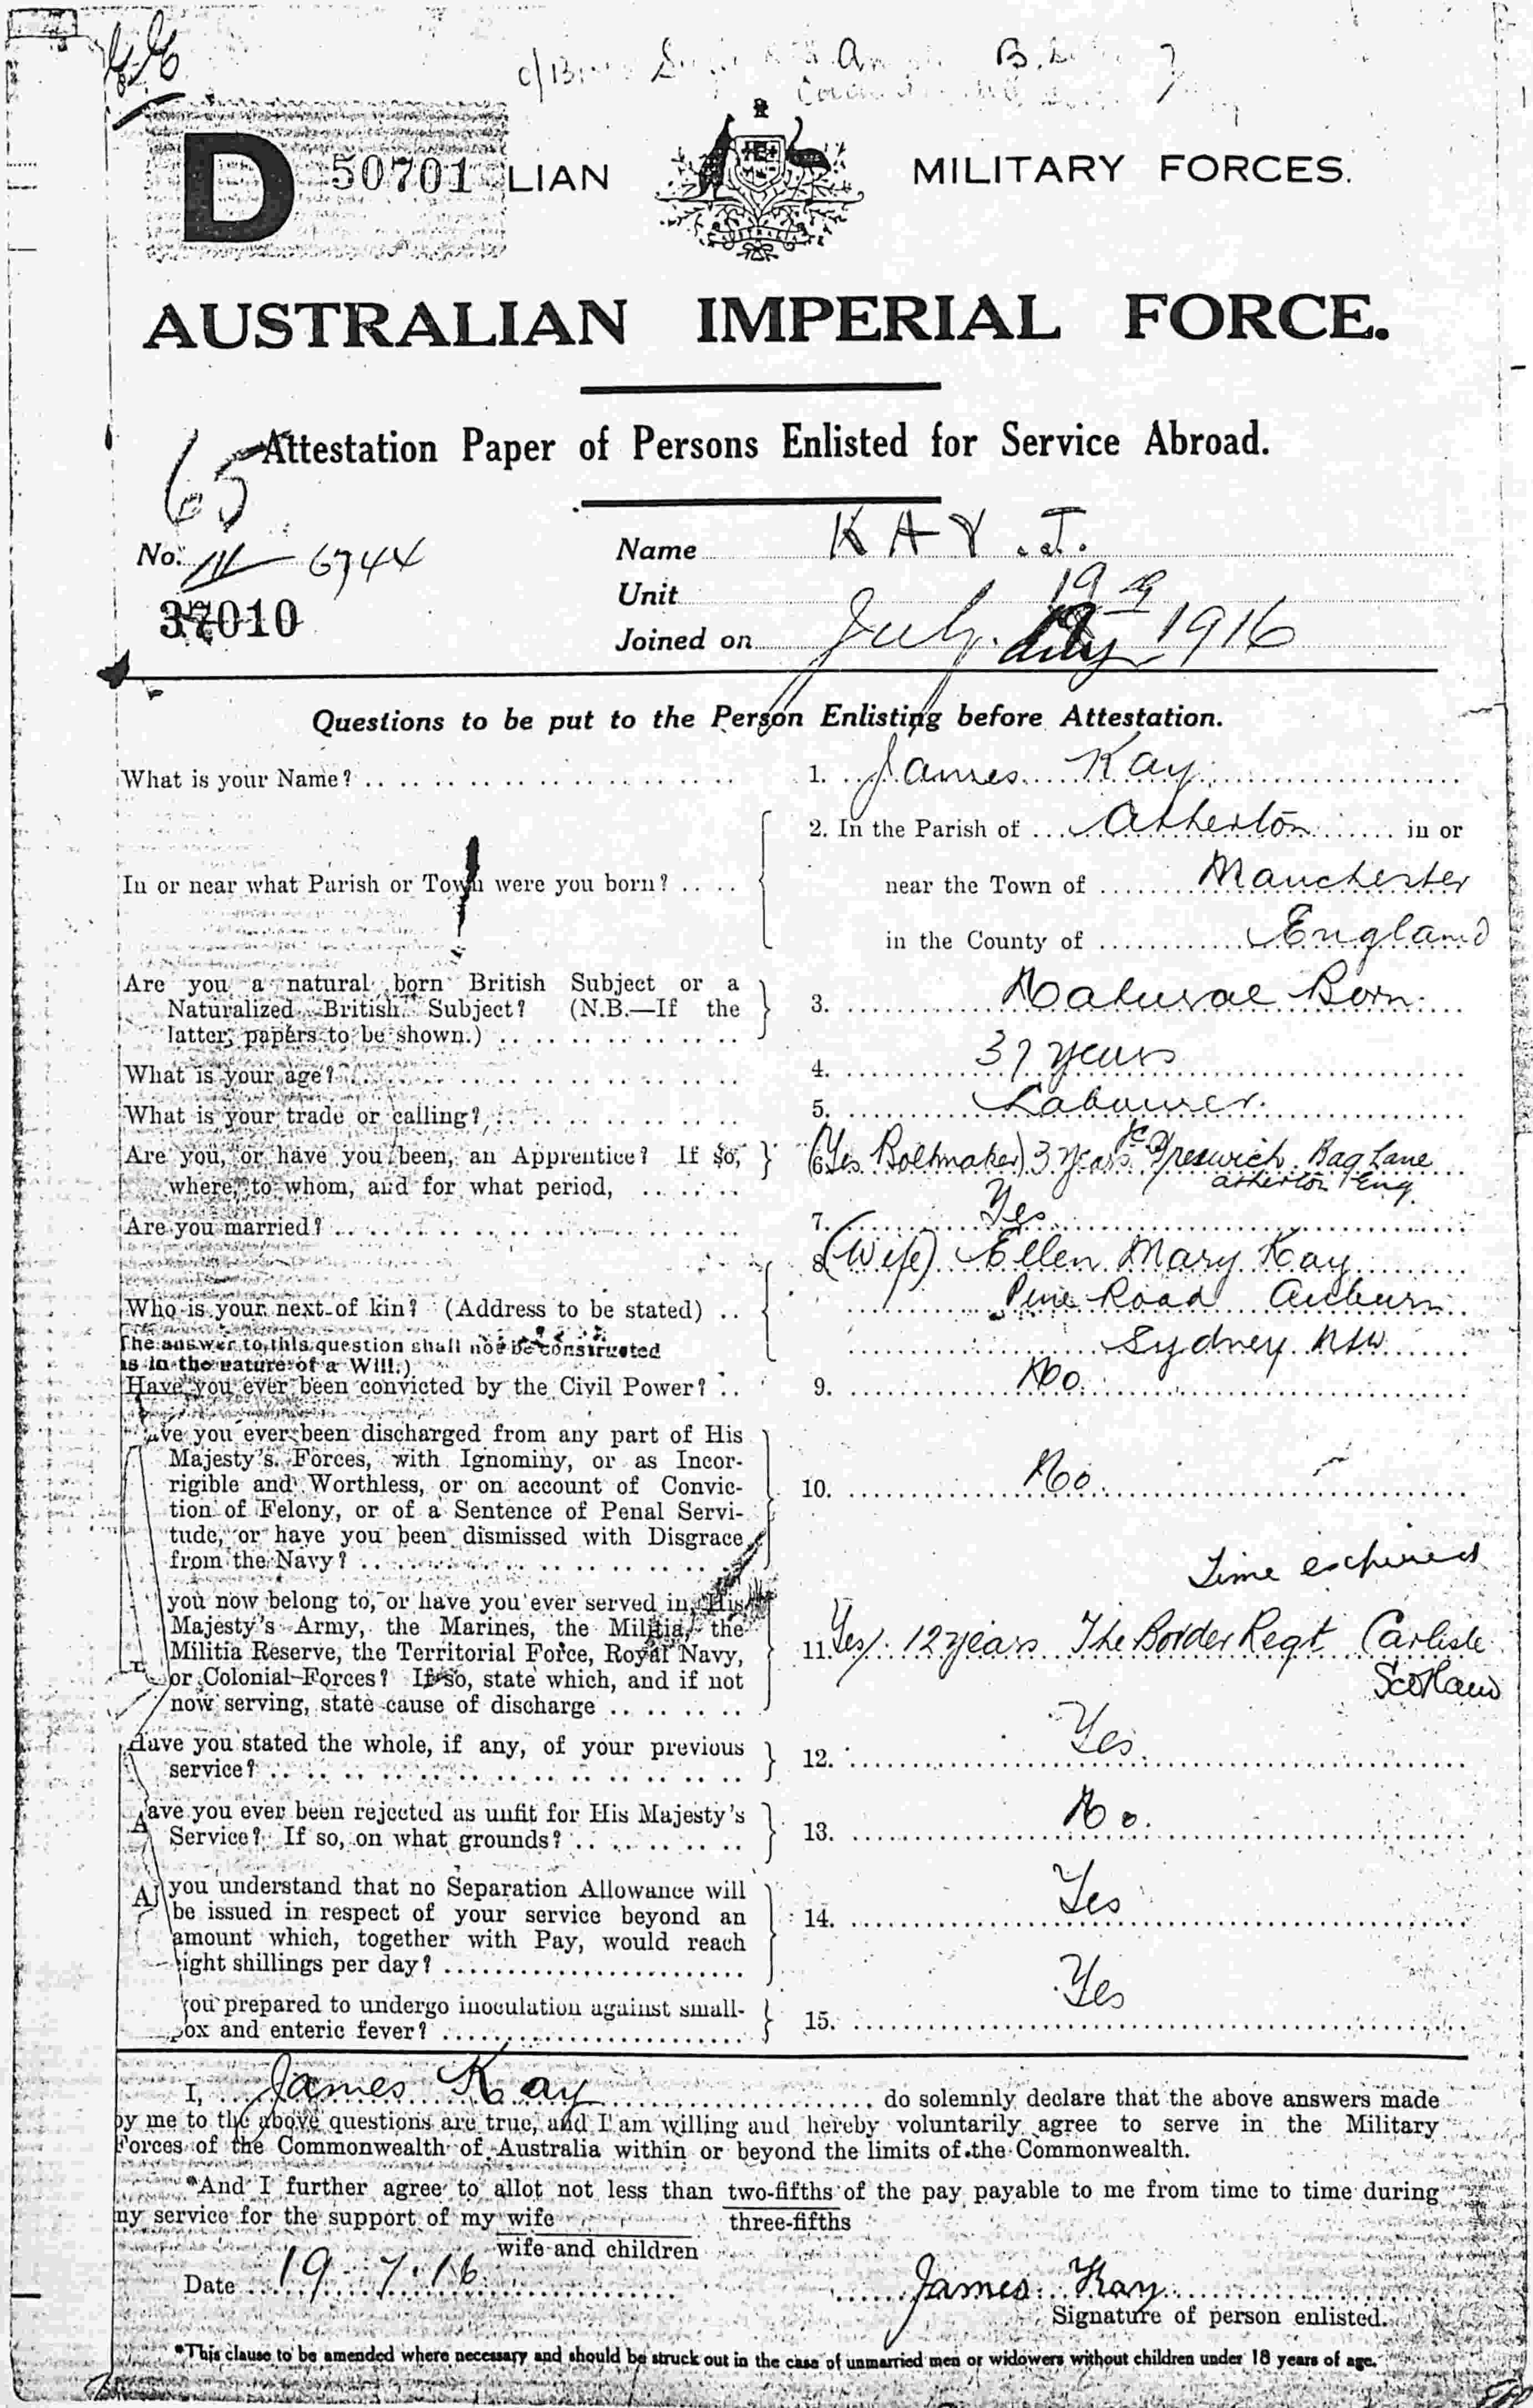 D 50701 LIAN MILITARY FORCES.
AUSTRALIA
AUSTRALIAN IMPERIAL FORCE.
65
Attestation Paper of Persons Enlisted for Service Abroad.
No. 6744
37010
Name KAY. J.
Unit 19
Joined on July 1916
Questions to be put to the Person Enlisting before Attestation.
What is your Name? 1. James Kay
2. In the Parish of Atherton in or
In or near what Parish or Town were you born? near the Town of Manchester
in the County of England
Are you a natural born British Subject or a
Naturalized British Subject? (N.B.—If the 3. Natural Born.
latter, papers to be shown.)
What is your age? 4. 37 years
What is your trade or calling? 5. Labourer.
Are you, or have you been, an Apprentice? If so, 6. (Yes Boltmaker) 3 years Preswich. Bag Lane
where, to whom, and for what period, Atherton Eng.
Are you married? 7. Yes
8. (Wife) Ellen Mary Kay
Who is your next of kin? (Address to be stated) Pine Road Auburn
The answer to this question shall not be construeted Sydney NSW
as in the nature of a Will.)
Have you ever been convicted by the Civil Power? 9. No.
ave you ever been discharged from any part of His
Majesty's Forces, with Ignominy, or as Incor-
rigible and Worthless, or on account of Convic- 10. No.
tion of Felony, or of a Sentence of Penal Servi-
tude, or have you been dismissed with Disgrace
from the Navy?
Time expired
you now belong to, or have you ever served in, His
Majesty's Army, the Marines, the Militia, the
Militia Reserve, the Territorial Force, Royal Navy, 11. Yes. 12 years The Border Regt Carlisle
or Colonial Forces? If so, state which, and if not Scotland
now serving, state cause of discharge
Have you stated the whole, if any, of your previous
service? 12. Yes.
ave you ever been rejected as unfit for His Majesty's
Service? If so, on what grounds? 13. No.
A you understand that no Separation Allowance will
be issued in respect of your service beyond an 14. Yes
amount which, together with Pay, would reach
ight shillings per day?
you prepared to undergo inoculation against small-
pox and enteric fever? 15. Yes
I, James Kay do solemnly declare that the above answers made
by me to the above questions are true, and I am willing and hereby voluntarily agree to serve in the Military
Forces of the Commonwealth of Australia within or beyond the limits of the Commonwealth.
*And I further agree to allot not less than two-fifths of the pay payable to me from time to time during
my service for the support of my wife three-fifths
wife and children
Date 19.7.16 James Kay
Signature of person enlisted.
*This clause to be amended where necessary and should be struck out in the case of unmarried men or widowers without children under 18 years of age.